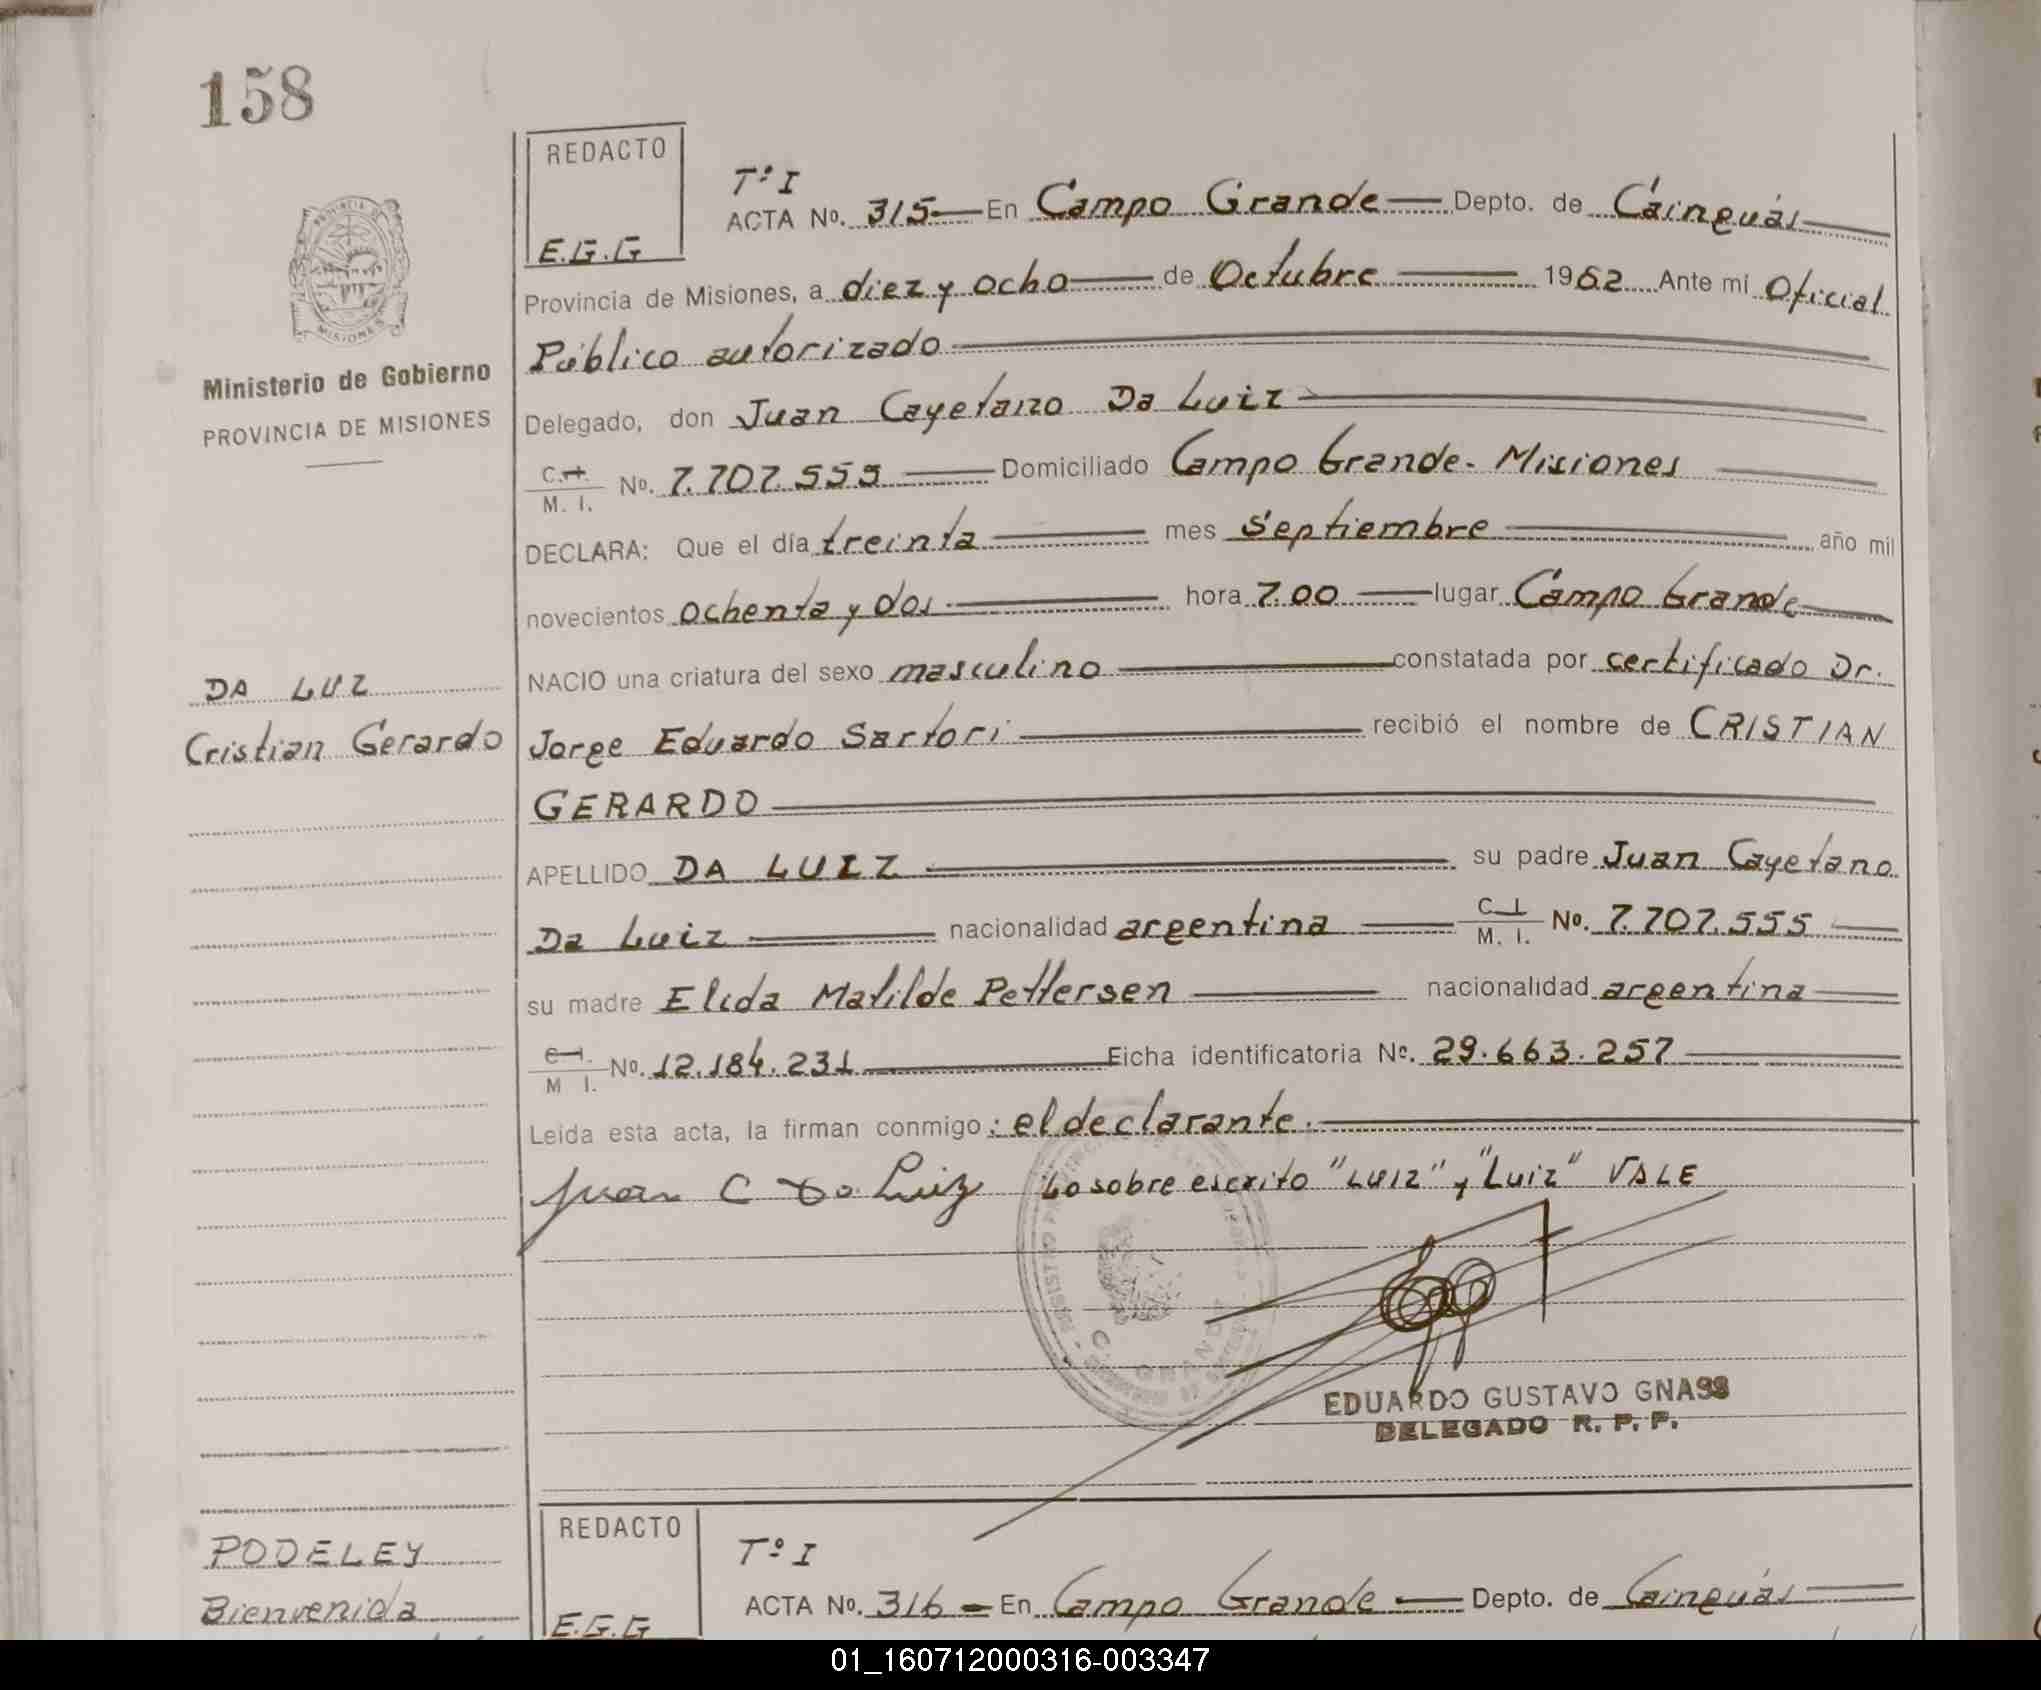 158
REDACTO
E.G.G
PROVINCIA DE
MISIONES
Ministerio de Gobierno
PROVINCIA DE MISIONES
Tº I
ACTA Nº. 315 En Campo Grande Depto. de Cainguás
Provincia de Misiones, a diez y ocho de Octubre 1982 Ante mi Oficial
Público autorizado
Delegado, don Juan Cayetano Da Luiz
C.I. M. I. Nº. 7.707.555 Domiciliado Campo Grande - Misiones
DECLARA: Que el día treinta mes Septiembre año mil
novecientos ochenta y dos hora 7.00 lugar Campo Grande
DA LUZ
NACIO una criatura del sexo masculino constatada por certificado Dr.
Cristian Gerardo
Jorge Eduardo Sartori recibió el nombre de CRISTIAN
GERARDO
APELLIDO DA LUIZ su padre Juan Cayetano
Da Luiz nacionalidad argentina C.I. M. I. Nº. 7.707.555
su madre Elida Matilde Pettersen nacionalidad argentina
C.I. M I. Nº. 12.184.231 Ficha identificatoria Nº. 29.663.257
Leida esta acta, la firman conmigo: el declarante.
Juan C Da Luiz Lo sobre escrito "LUIZ" y "Luiz" VALE
C. GRANDE
EDUARDO GUSTAVO GNASS
DELEGADO R. P. P.
PODELEY
Bienvenida
REDACTO
E.G.G
Tº I
ACTA Nº. 316 - En Campo Grande Depto. de Cainguás
01_160712000316-003347